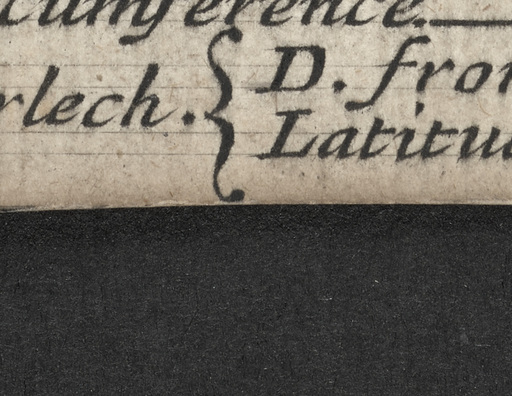 cumference
rlech. { D. from
Latitu